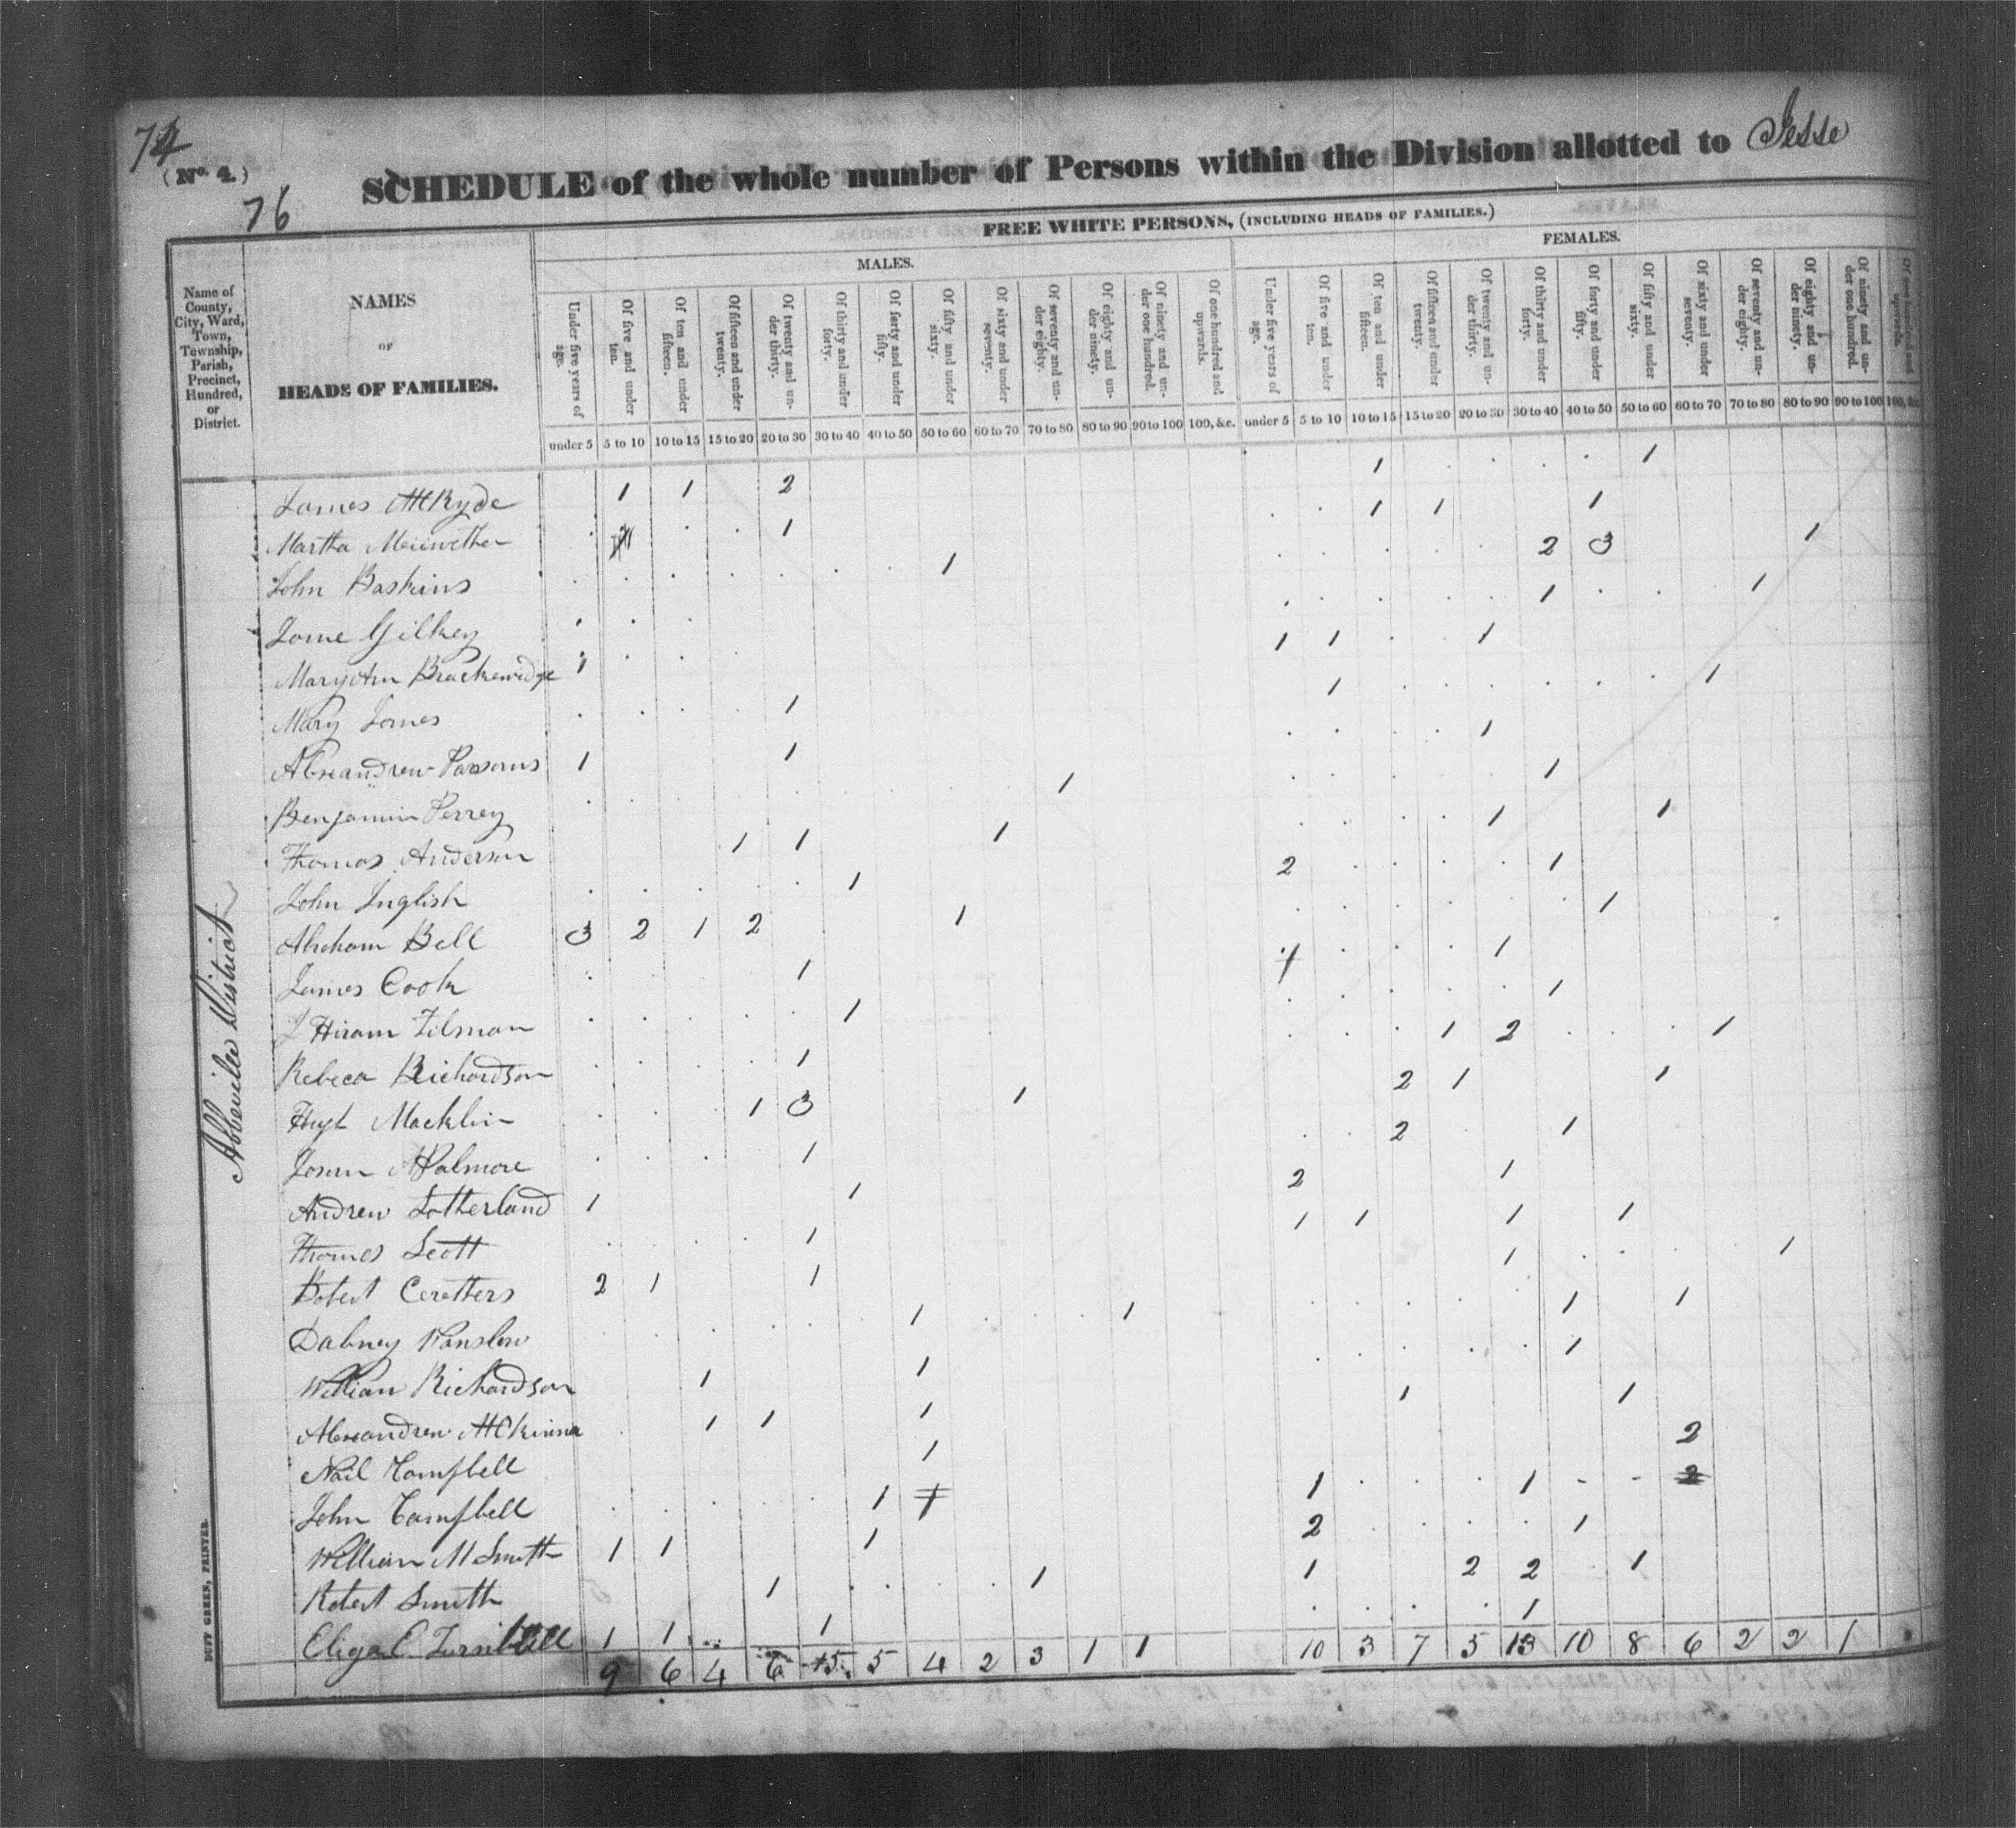 74
(No. 4.)
76
SCHEDULE of the whole number of Persons within the Division allotted to Jesse
FREE WHITE PERSONS, (INCLUDING HEADS OF FAMILIES.)
MALES. FEMALES.
Name of County, City, Ward, Town, Township, Parish, Precinct, Hundred, or District.
NAMES
OF
HEADS OF FAMILIES.
Under five years of age. Of five and under ten. Of ten and under fifteen. Of fifteen and under twenty. Of twenty and under thirty. Of thirty and under forty. Of forty and under fifty. Of fifty and under sixty. Of sixty and under seventy. Of seventy and under eighty. Of eighty and under ninety. Of ninety and under one hundred. Of one hundred and upwards. Under five years of age. Of five and under ten. Of ten and under fifteen. Of fifteen and under twenty. Of twenty and under thirty. Of thirty and under forty. Of forty and under fifty. Of fifty and under sixty. Of sixty and under seventy. Of seventy and under eighty. Of eighty and under ninety. Of ninety and under one hundred. Of one hundred and upwards.
under 5 5 to 10 10 to 15 15 to 20 20 to 30 30 to 40 40 to 50 50 to 60 60 to 70 70 to 80 80 to 90 90 to 100 100, &c. under 5 5 to 10 10 to 15 15 to 20 20 to 30 30 to 40 40 to 50 50 to 60 60 to 70 70 to 80 80 to 90 90 to 100 100, &c.
Abbeville District
James McKyde 1 1 2 1 1
Martha Meriwether 1 1 1 1
John Baskins 1 2 3 1
Jane Gilkey 1 1
Maryann Brackenridge 1 1 1 1
Mary James 1 1 1
Alexandrew Parsons 1 1 1
Benjamin Perrey 1 1
Thomas Anderson 1 1 1 1 1
John Inglish 1 2 1
Abraham Bell 3 2 1 2 1 1
James Cook 1 1 1
J Hiram Tilman 1 1
Rebeca Richardson 1 1 2 1
Hugh Macklin 1 3 1 2 1 1
Palmore 1 2 1
Andrew Lotherland 1 1 2 1
Thomas Scott 1 1 1 1 1
Robert Ceretters 2 1 1 1 1
Dabney Wanslow 1 1 1 1
William Richardson 1 1 1
Alexandrew McKinna 1 1 1 1 1
Nail Campbell 1 2
John Campbell 1 1 1 1 2
William M Smith 1 1 1 2 1
Robert Smith 1 1 1 2 2 1
Eliga C. Turnbull 1 1 1 1
9 6 4 6 15 5 4 2 3 1 1 10 3 7 5 13 10 8 6 2 2 1
DUFF GREEN, PRINTER.